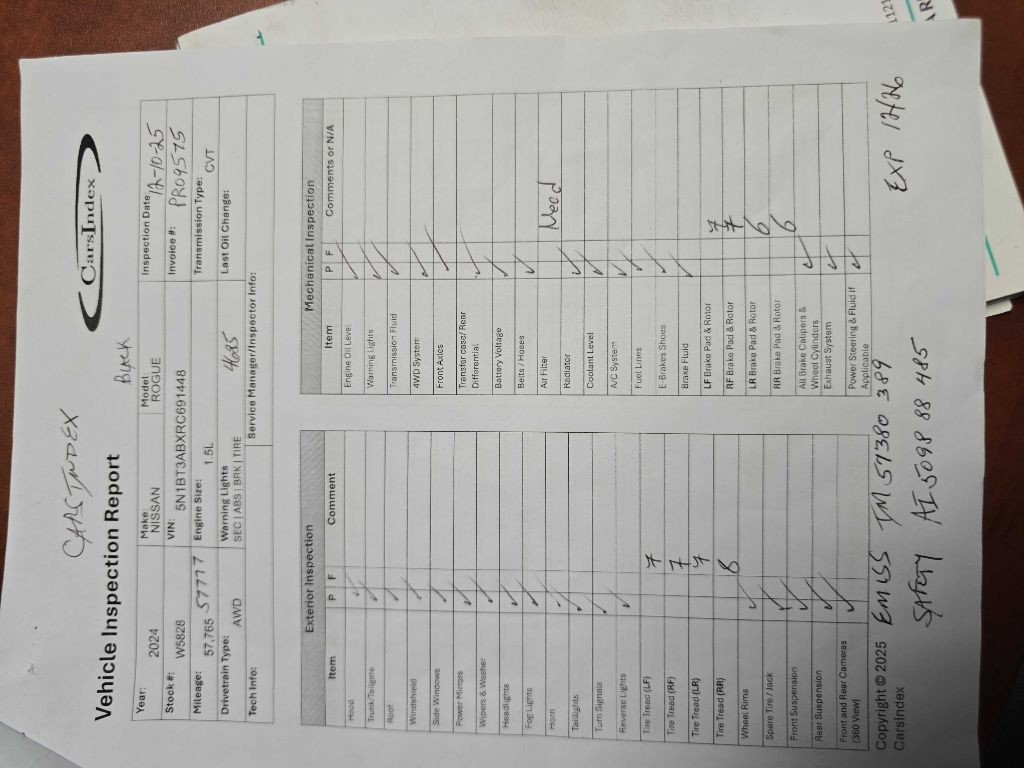 CARSINDEX
Vehicle Inspection Report
Black
CarsIndex
Year: 2024 Make: NISSAN Model: ROGUE Inspection Date: 12-10-25
Stock #: W5828 VIN: 5N1BT3ABXRC691448 Invoice #: PRO9575
Mileage: 57,765 57777 Engine Size: 1.5L Transmission Type: CVT
Drivetrain Type: AWD Warning Lights SEC | ABS | BRK | TIRE 4685 Last Oil Change:
Tech Info: Service Manager/Inspector Info:
Exterior Inspection
Item P F Comment
Hood ✓
Trunk/Tailgate ✓
Roof ✓
Windshield ✓
Side Windows ✓
Power Mirrors ✓
Wipers & Washer ✓
Headlights ✓
Fog Lights ✓
Horn ✓
Taillights ✓
Turn Signals ✓
Reverse Lights ✓
Tire Tread (LF) 7
Tire Tread (RF) 7
Tire Tread (LR) 7
Tire Tread (RR) 8
Wheel Rims ✓
Spare Tire / Jack ✓
Front Suspension ✓
Rear Suspension ✓
Front and Rear Cameras (360 View) ✓
Mechanical Inspection
Item P F Comments or N/A
Engine Oil Level ✓
Warning Lights ✓
Transmission Fluid ✓
4WD System ✓
Front Axles ✓
Transfer case/ Rear Differential ✓
Battery Voltage ✓
Belts / Hoses ✓
Air Filter Need
Radiator ✓
Coolant Level ✓
A/C System ✓
Fuel Lines ✓
E-Brakes Shoes ✓
Brake Fluid ✓
LF Brake Pad & Rotor 7
RF Brake Pad & Rotor 7
LR Brake Pad & Rotor 6
RR Brake Pad & Rotor 6
All Brake Calipers & Wheel Cylinders ✓
Exhaust System ✓
Power Steering & Fluid if Applicable ✓
Copyright © 2025
CarsIndex
EMISS IM 57380 389 EXP 12/26
SAFETY AI 5098 88 485
1121